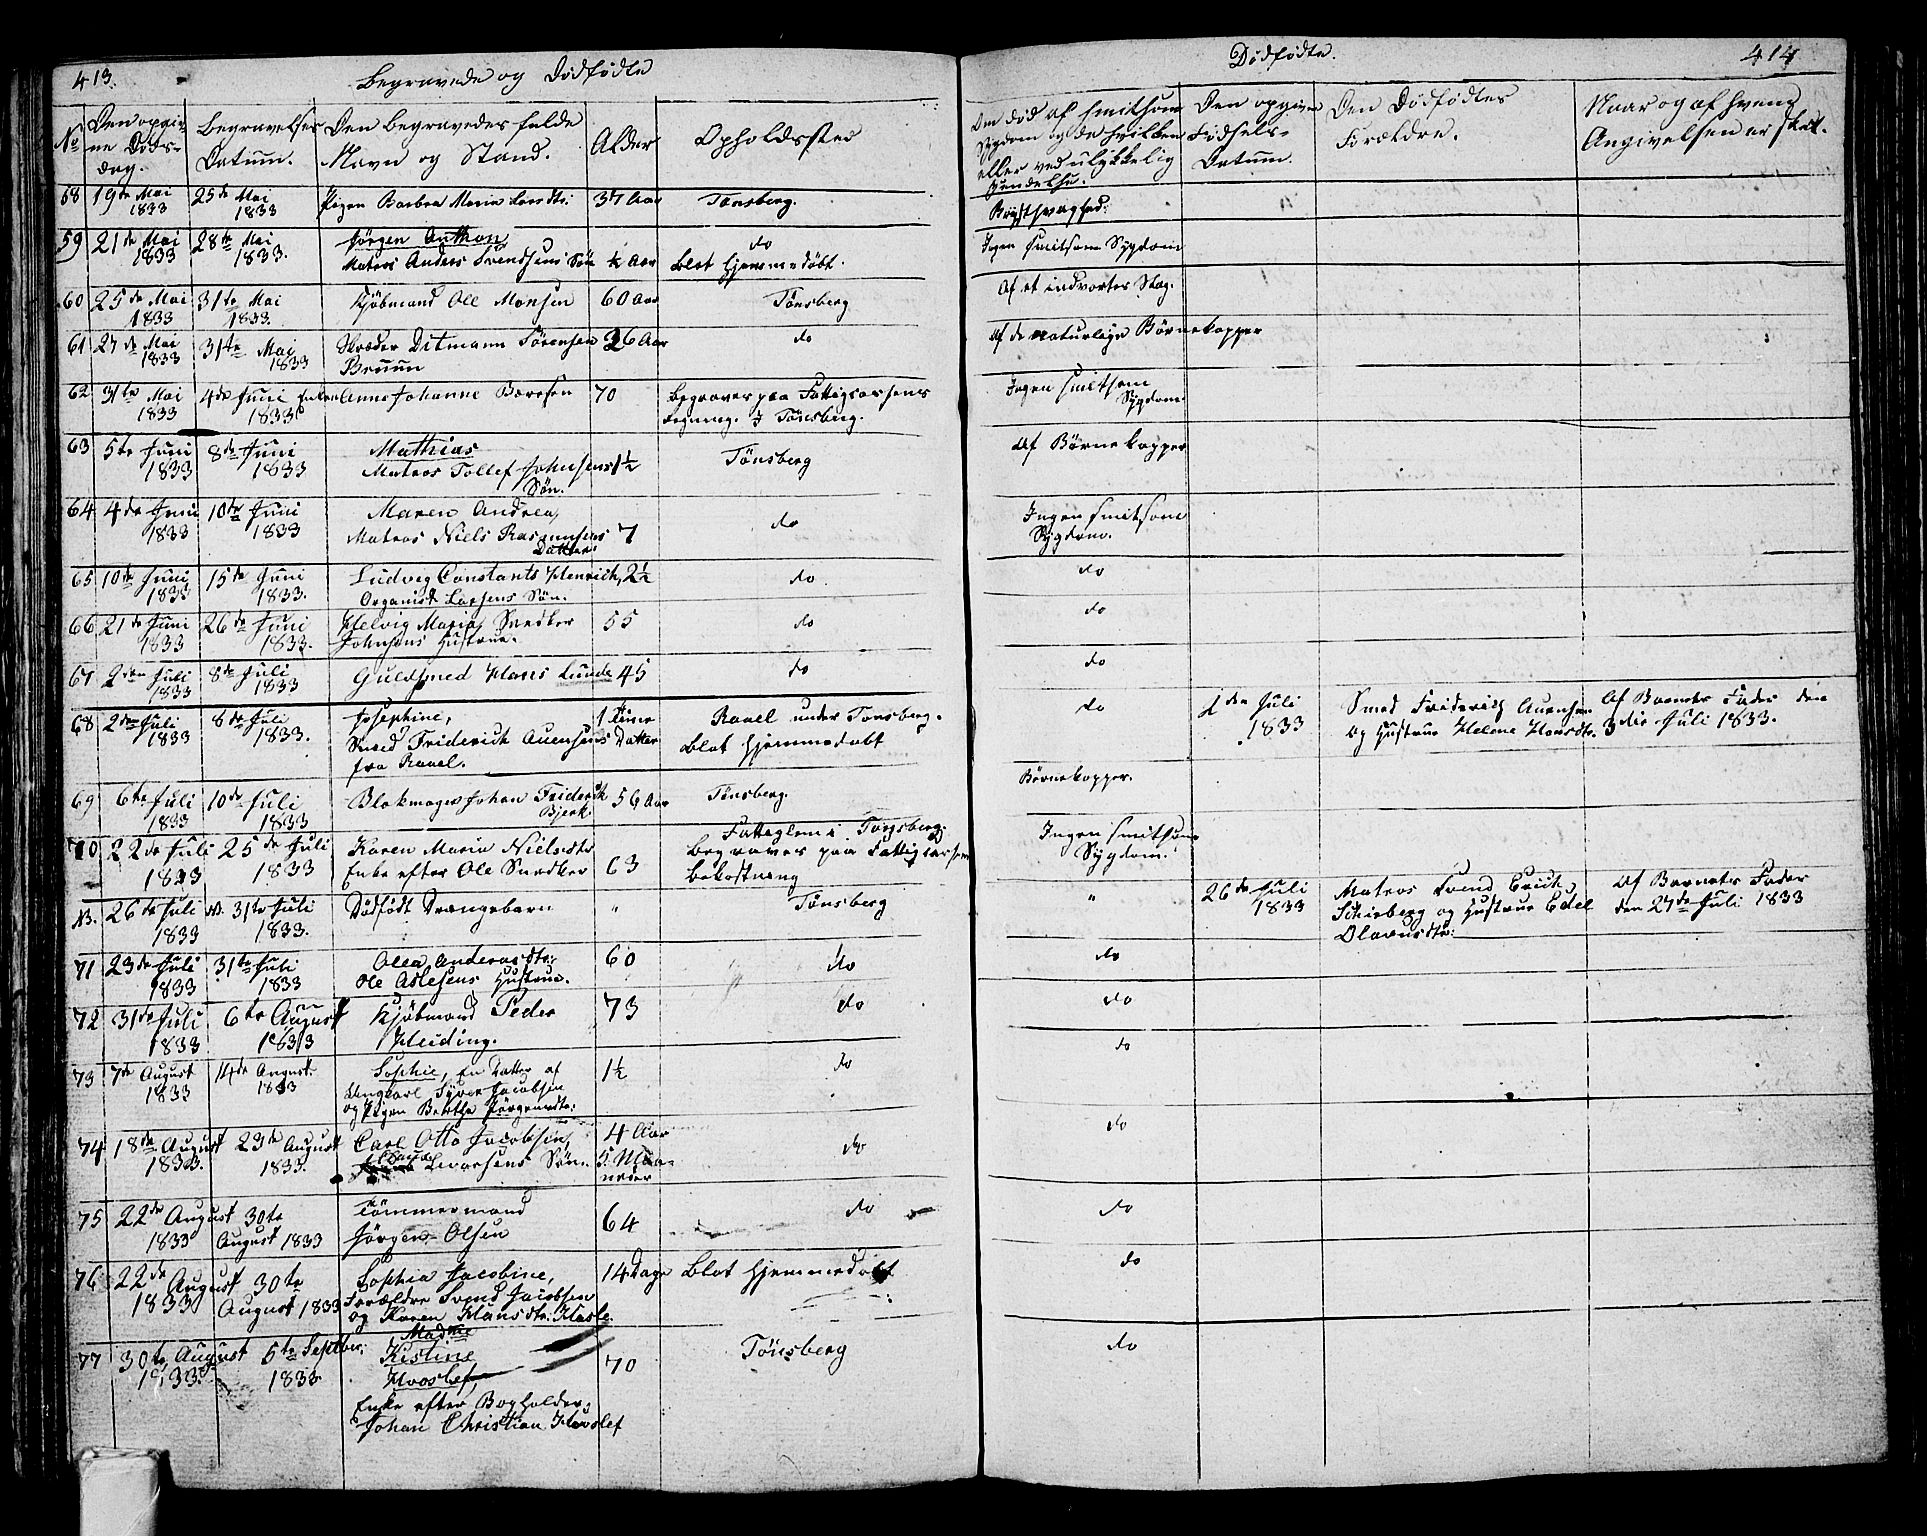 413.
Begravede og Dødfødte
No
Den opgivne Døds-dag.
Begravelses Datum.
Den begravedes fulde Navn og Stand.
Alder
Opholdssted
58 19de Mai 1833 25de Mai 1833 Pigen Barbra Maria Larsdtr: 37 Aar Tønsberg.
59 21de Mai 1833 28de Mai 1833. Jørgen Anthon, ½ Aar do
Matros Anders Svendsens Søn Blot hjemmedøbt.
60 25de Mai 1833 31te Mai 1833. Kjøbmand Ole Monsen 60 Aar Tönsberg
61 27de Mai 1833 31te Mai 1833 Skræder Ditmann Sørensen 26 Aar do
Bruun
62 31te Mai 1833 4de Juni 1833 Enken Anne Johanne 70 Begraves paa Fattigcassens
Regning. I Tønsberg.
63 5te Juni 1833 8de Juni 1833 Mathias 1½ Tönsberg
Matros Tollef Johnsens
Søn.
64 4de Juni 1833 10de Juni 1833 Maren Andrea, 7 do
Matros Niels Rasmusens
Datter.
65 10de Juni 1833 15de Juni 1833. Ludvig Constants Henrich, 2½ do
Organist Larsens Søn.
66 21de Juni 1833 26de Juni 1833. Helvig Maria, Snedker 55 do
Johnsens Hustrue.
67 2den Juli 1833 8de Juli 1833 Guldsmed Hans Lunde 45 do
68 2den Juli 1833 8de Juli 1833. Josephine, 1 Time Ravel under Tønsberg.
Smed Friderich Auensens Datter Blot hjemmedøbt
fra Ravel.
69 6te Juli 1833 10de Juli 1833 Blokmager Johan Friderich 56 Aar Tönsberg.
Bjerk.
70 22de Juli 1833 25de Juli 1833 Karen Maria Nielsdtr 63 Fattiglem i Tønsberg.
Enke efter Ole Snedker begraves paa Fattigcassens
bekostning
N.B. 26de Juli 1833 N. 31te Juli 1833. Dødfødt Drængebarn " Tönsberg
71 23de Juli 1833 31te Juli 1833 Olea Andersdtr: 60 do
Ole Aslesens Hustrue.
72 31de Juli 1833 6te August 1833 Kjöbmand Peder 73 do
Heiding.
73 7de August 1833 14de August 1833 Sophie, En Datter af 1½ do
Ungkarl Syver Jacobsen
og Pigen Berthe Jørgensdtr:
74 18de August 1833. 23de August 1833. Carl Otto Jacobsen, 4 Aar 5 Maaneder do
Levorsens Søn.
75 22de August 1833 30te August 1833 Tømmermand 64 do
Jørgen Olsen
76 22de August 1833 30te August 1833 Sophia Jacobine, 14 Dage Blot hjemmedøbt
Forældre Svend Jacobsen
og Karen Hansdtr: Hasle.
77 30te August 1833. 5te Septbr: 1833 Madme 70 Tönsberg
Kistine
Hvoslef,
Enke efter Bogholder
Johan Christian Hvoslef
Dødfødte.
414
Om død af smitsom Sygdom og da hvilken eller ved ulykkelig Hændelse.
Den opgivne Fødsels-Datum.
Den Dødfødtes Forældre.
Naar og af hvem Angivelsen er skeet.
Brystsvaghed.
Ingen smitsom Sygdom
Af et indvortes Slag.
Af de naturlige Børnekopper
Ingen smitsom Sygdom.
Af Børnekopper
Ingen smitsom Sygdom.
do
do
do
do 1den Juli 1833 Smed Friderich Auensen Af Barnets Fader den
og Hustrue Helene Hansdtr. 3die Juli 1833.
Børnekopper.
Ingen smitsom Sygdom.
" 26de Juli 1833 Matros Svend Erich Af Barnets Fader
Schieberg og Hustrue Edel den 27de Juli 1833
Olavusdtr:
do
do
do
do
do
do
do